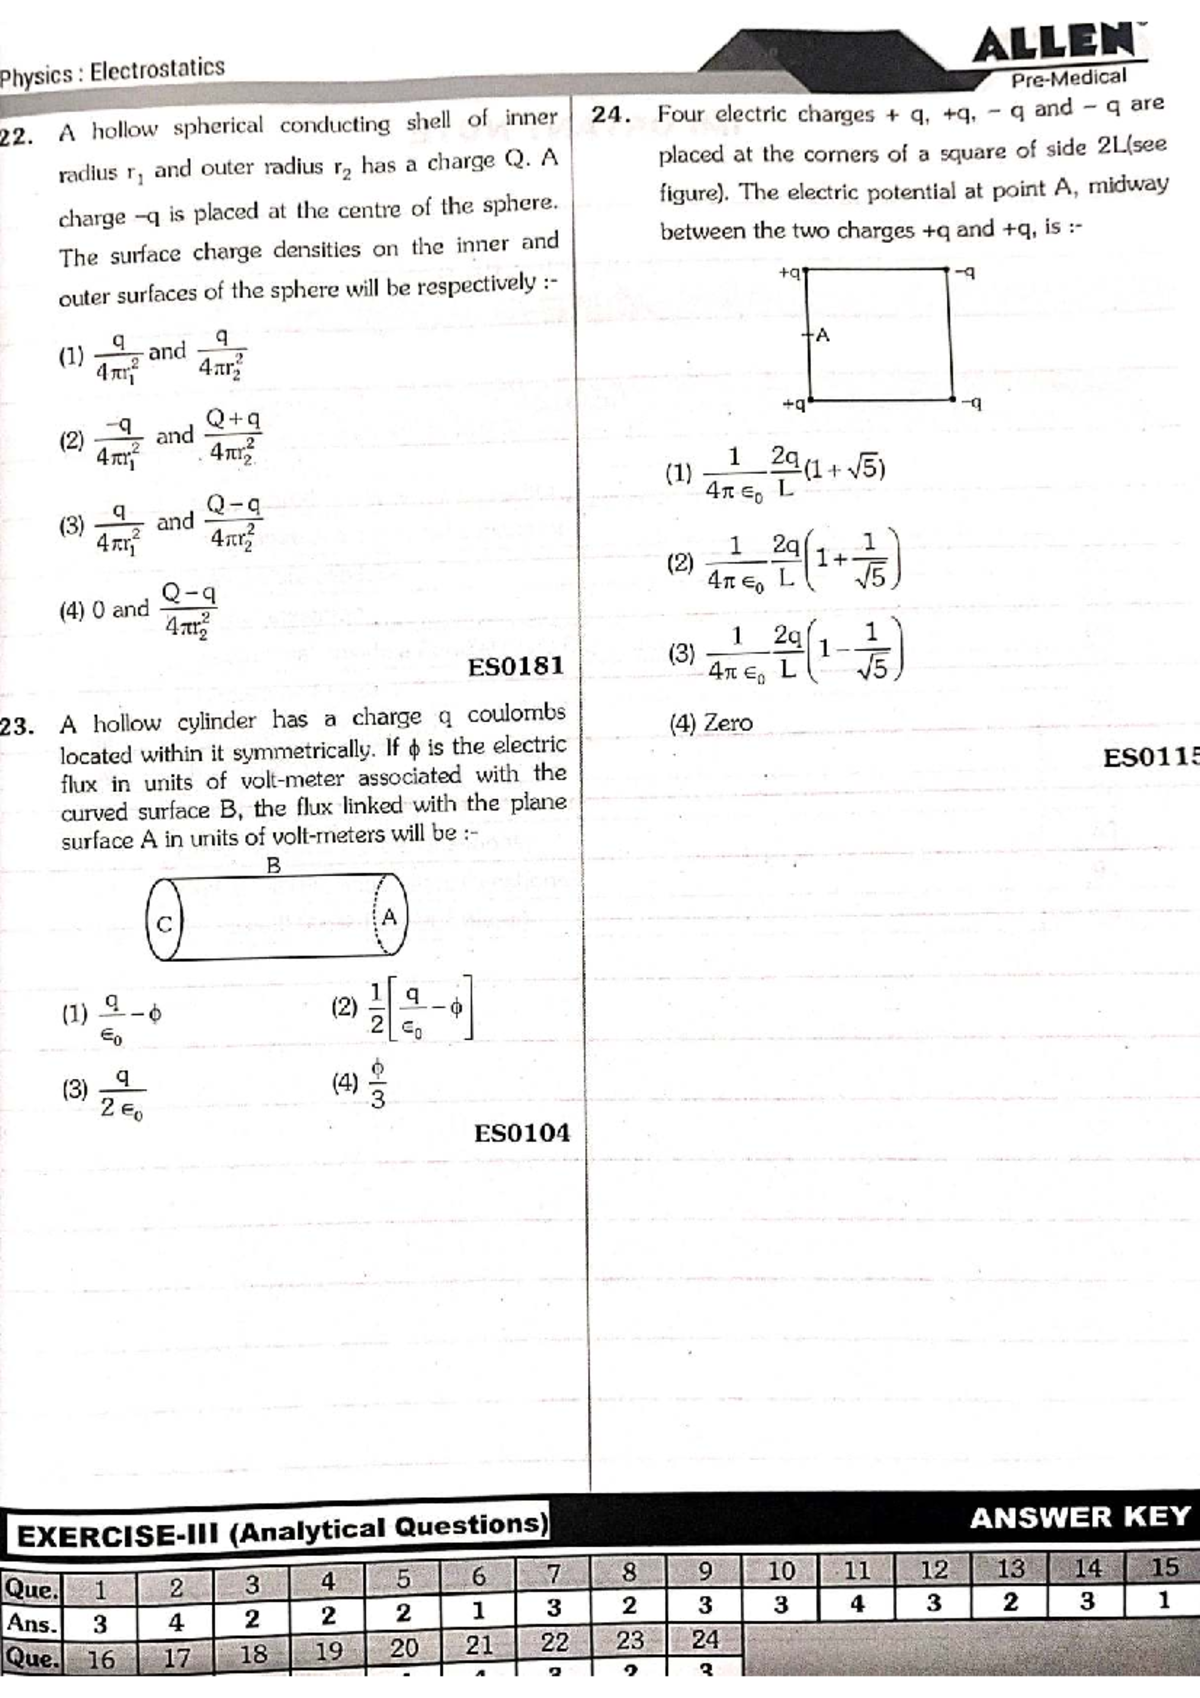 Physics : Electrostatics
ALLEN
Pre-Medical
22. A hollow spherical conducting shell of inner
radius r₁ and outer radius r₂ has a charge Q. A
charge –q is placed at the centre of the sphere.
The surface charge densities on the inner and
outer surfaces of the sphere will be respectively :-
(1) q/4πr₁² and q/4πr₂²
(2) –q/4πr₁² and Q+q/4πr₂²
(3) q/4πr₁² and Q–q/4πr₂²
(4) 0 and Q–q/4πr₂²
ES0181
23. A hollow cylinder has a charge q coulombs
located within it symmetrically. If ϕ is the electric
flux in units of volt-meter associated with the
curved surface B, the flux linked with the plane
surface A in units of volt-meters will be :-
B
C
A
(1) q/∈₀ – ϕ (2) 1/2[q/∈₀ – ϕ]
(3) q/2∈₀ (4) ϕ/3
ES0104
24. Four electric charges + q, +q, – q and – q are
placed at the corners of a square of side 2L(see
figure). The electric potential at point A, midway
between the two charges +q and +q, is :-
+q –q
A
+q –q
(1) 1/4π∈₀ 2q/L (1 + √5)
(2) 1/4π∈₀ 2q/L (1 + 1/√5)
(3) 1/4π∈₀ 2q/L (1 – 1/√5)
(4) Zero
ES0115
EXERCISE-III (Analytical Questions) ANSWER KEY
Que. 1 2 3 4 5 6 7 8 9 10 11 12 13 14 15
Ans. 3 4 2 2 2 1 3 2 3 3 4 3 2 3 1
Que. 16 17 18 19 20 21 22 23 24
3 2 3